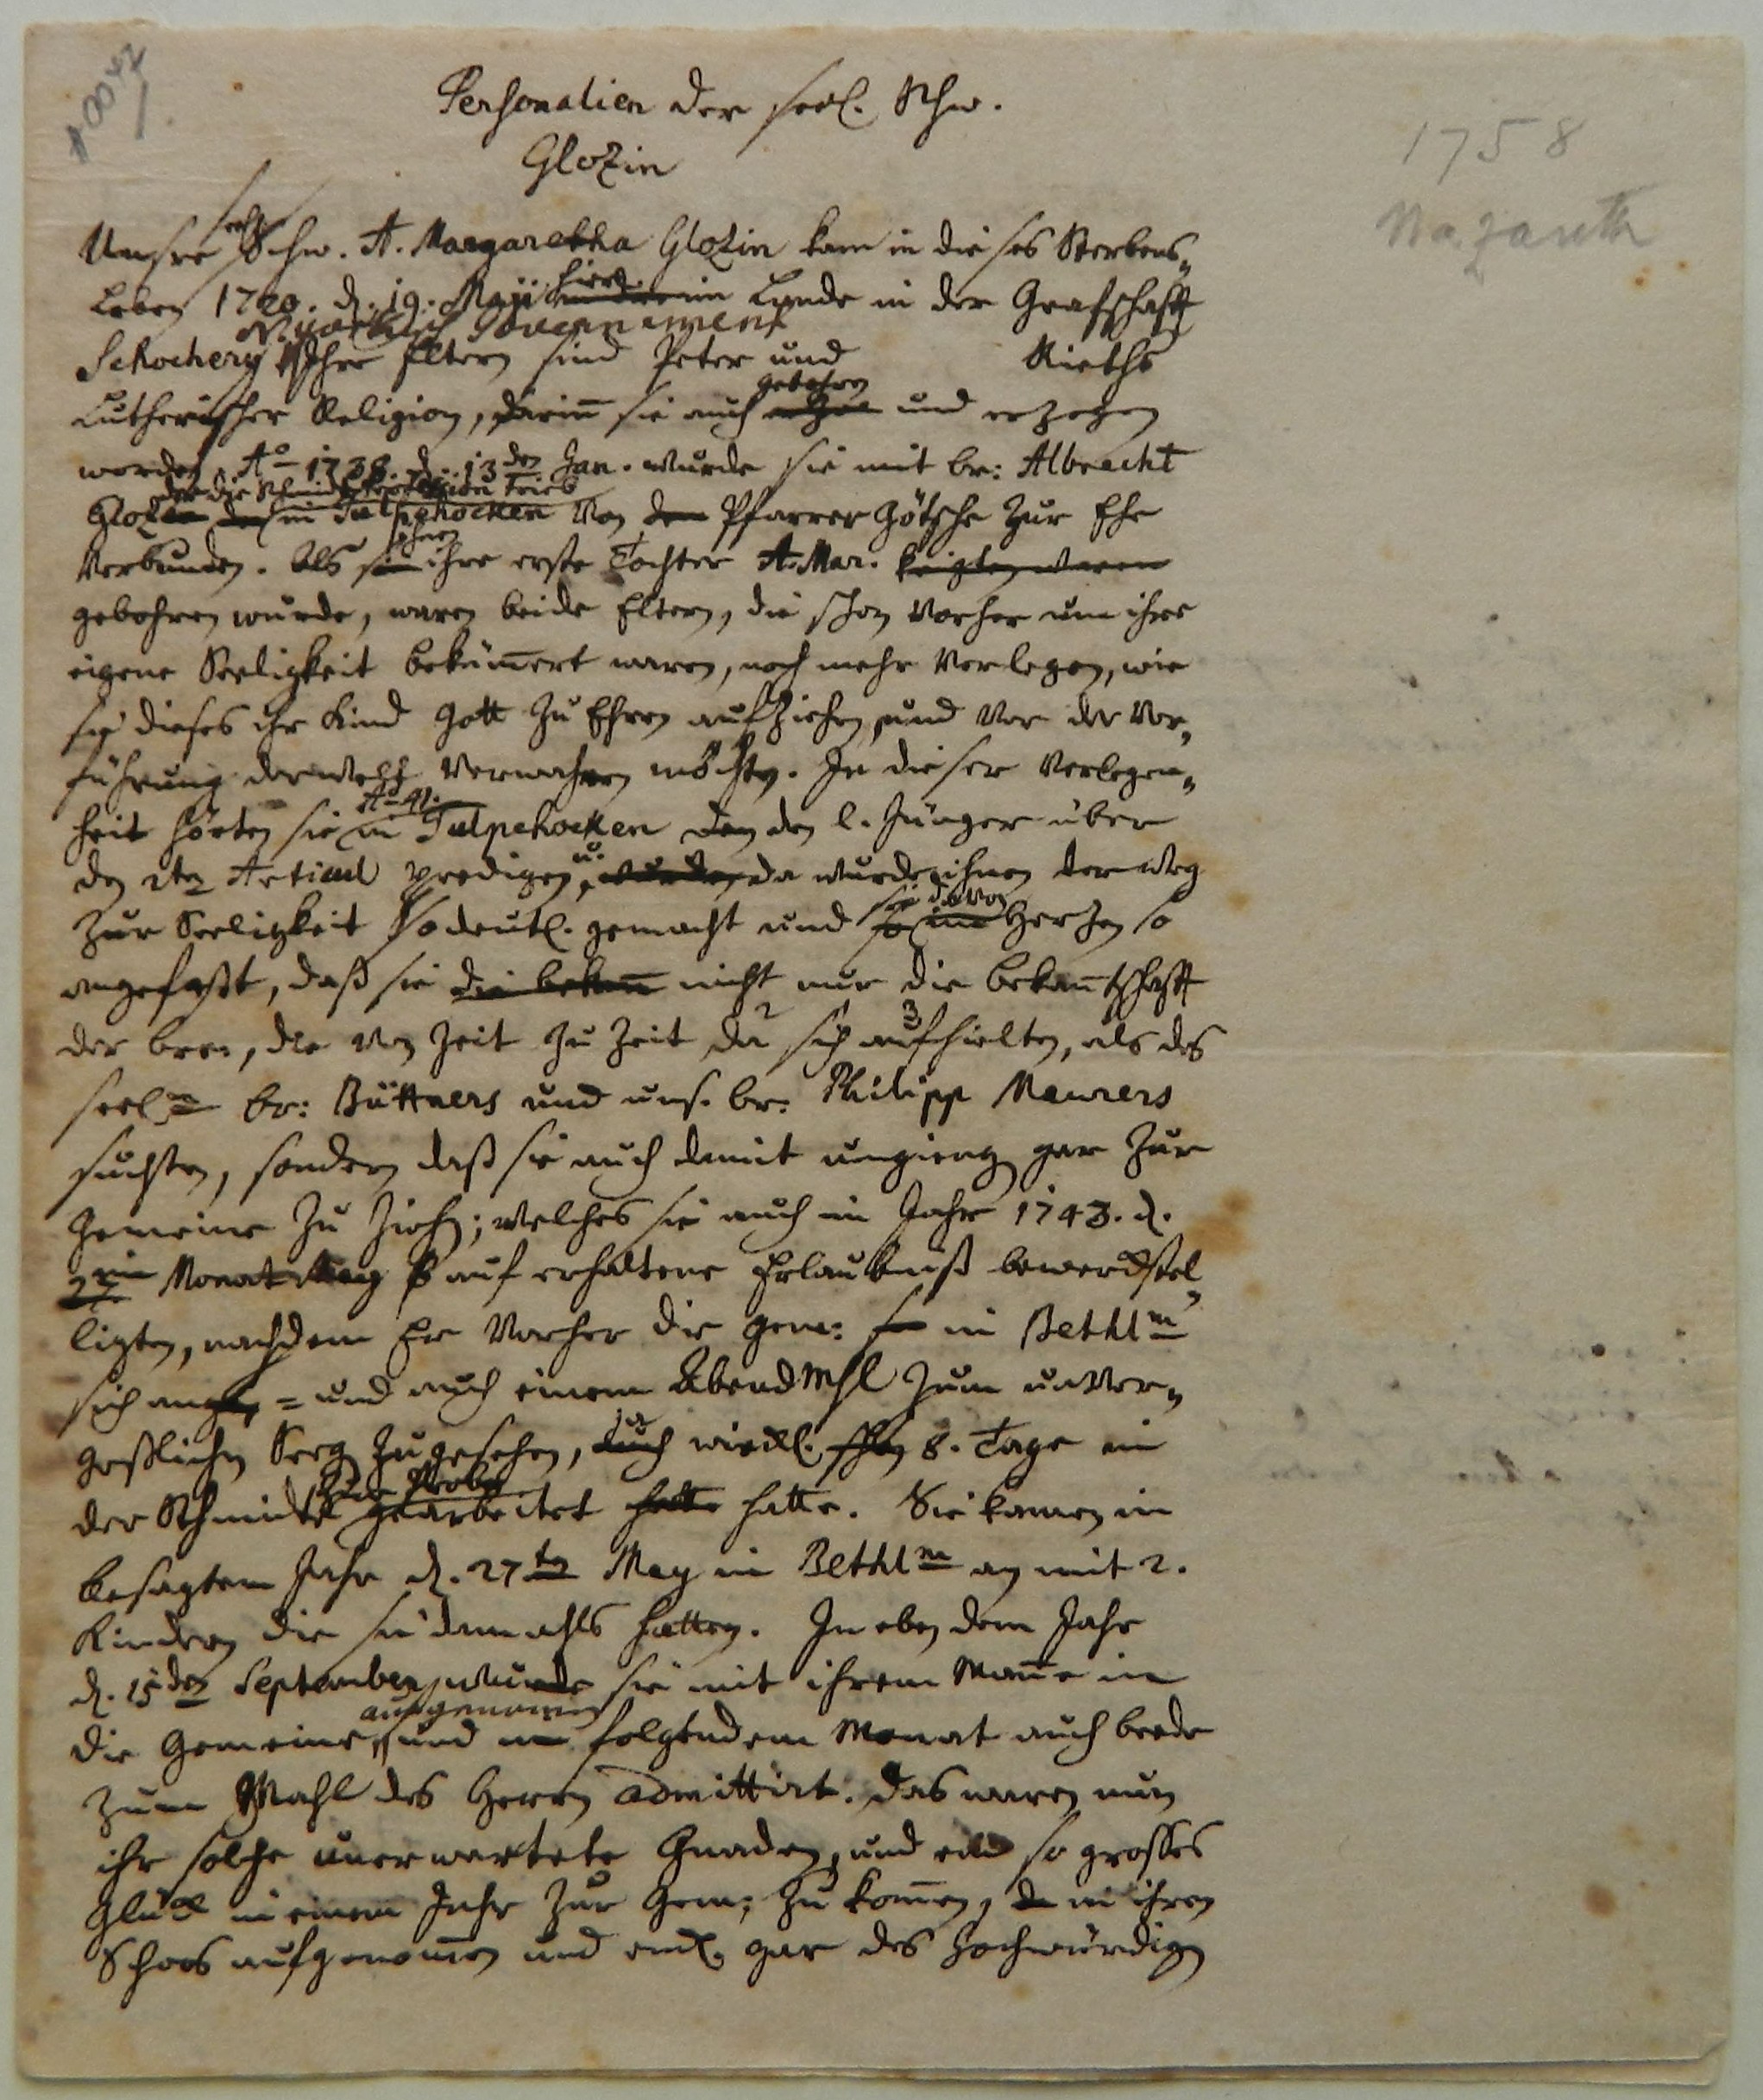 Personalien der seel. Schw.
Glozin
1758
Nazareth
Unsre seel. Schw. A. Margaretha Glozin kam in dieses Sterbens-
Leben 1720. d. 19. Maji hier im Lande in der Grafschafft
Schochery Nyorkisch Gouvernement Ihre Eltern sind Peter und Rieths
Lutherischer Religion, darinn sie auch gebohren und erzogen
worden. Ao 1738. d. 13den Jan. wurde sie mit br: Albrecht
Gloz der die Schmidts Profession trieb in Tulpehocken von dem Pfarrer Götsche zur Ehe
verbunden. Als ihnen ihre erste Tochter A. Mar.
gebohren wurde, waren beide Eltern, die schon vorher um ihre
eigene Seeligkeit bekümert waren, noch mehr verlegen, wie
sie dieses ihr Kind Gott zu Ehren aufziehen, und vor der Ver-
führung der Welt verwahren möchten. In dieser Verlegen-
heit hörten sie Ao 41. in Tulpehocken den l. Jünger über
den 2ten Articul predigen, u. da wurde ihnen der Weg
zur Seeligkeit so deutl. gemacht und sie davon im Herzen so
angefasst, daß sie die bekann nicht nur die bekantschafft
der brr., die von Zeit zu Zeit da sich aufhielten, als des
seeln br: Büttners und uns. br. Philipp Meurers
suchten, sondern daß sie auch damit umgieng gar zur
Gemeine zu ziehen; welches sie auch im Jahr 1743. d.
27 im Monat May auf erhaltene Erlaubniß bewerckstel-
ligten, nachdem Er vorher die Gem: in Bethlm
sich und auch einem Abendmahl zum unver-
geßlichen Seegen zugesehen, auch wirckl. schon 8. Tage in
der Schmidte zur Probe gearbeitet hatte. Sie kamen in
besagtem Jahr d. 27ten May in Bethlm an mit 2.
Kindern die sie damahls hatten. In eben dem Jahr
d. 15den September wurde sie mit ihrem Mañe in
die Gemeine aufgenomen, und folgendem Monat auch beede
zum Mahl des Herrn admittirt. das waren nun
ihr solche unerwartete Gnaden, und ein so grosses
Glück in einem Jahr zur Gem: zu komen, in ihren
Schoos aufgenomen und endl. gar des hochwürdigen